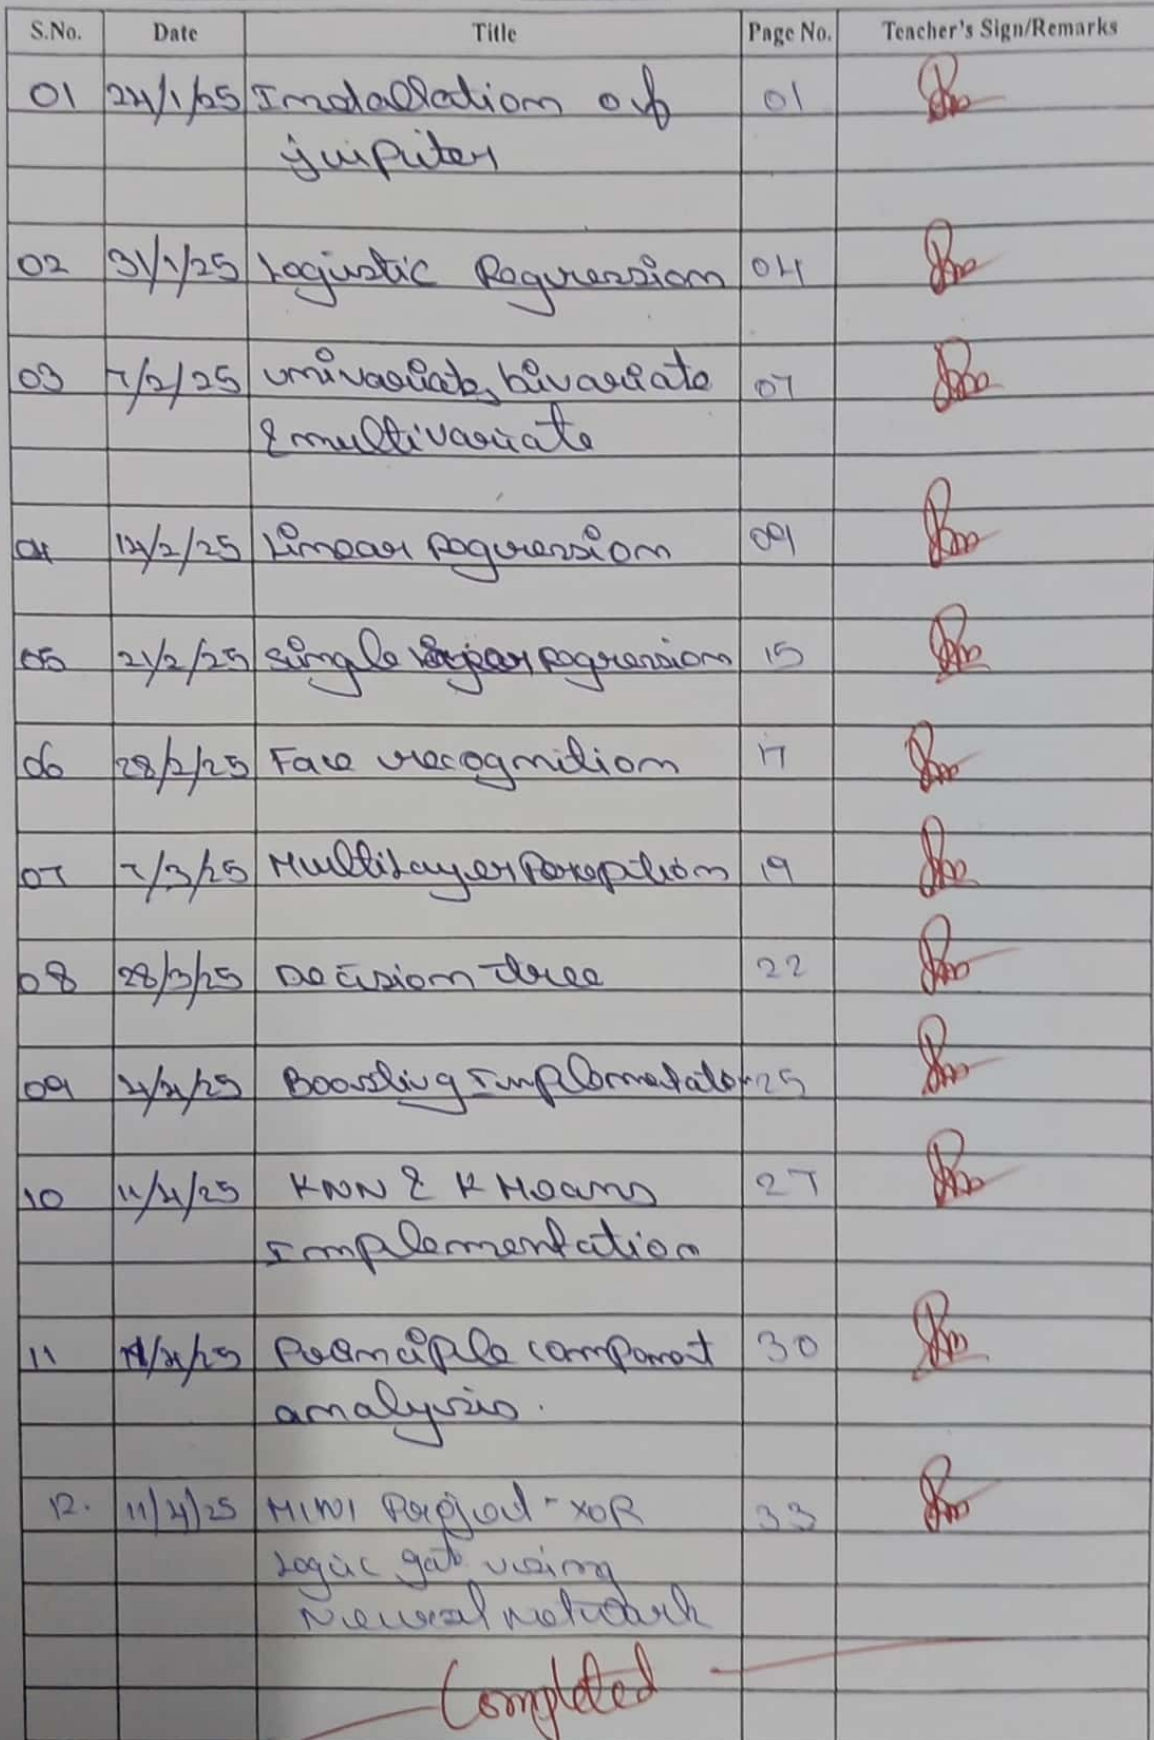 S.No. Date Title Page No. Teacher's Sign/Remarks
01 24/1/25 Installation of 01
juipiter
02 31/1/25 Logistic Regression 04
03 7/2/25 univariate, bivariate 07
& multivariate
04 14/2/25 Linear regression 09
05 21/2/25 single layer regression 15
06 28/2/25 Face recognition 17
07 7/3/25 Multilayer Perception 19
08 28/3/25 Decision tree 22
09 4/4/25 Boosting Implemetation 25
10 11/4/25 KNN & K Means 27
Implementation
11 11/4/25 Principle component 30
analysis.
12. 11/4/25 MINI Project - XOR 33
Logic gate using
Neural network
Completed